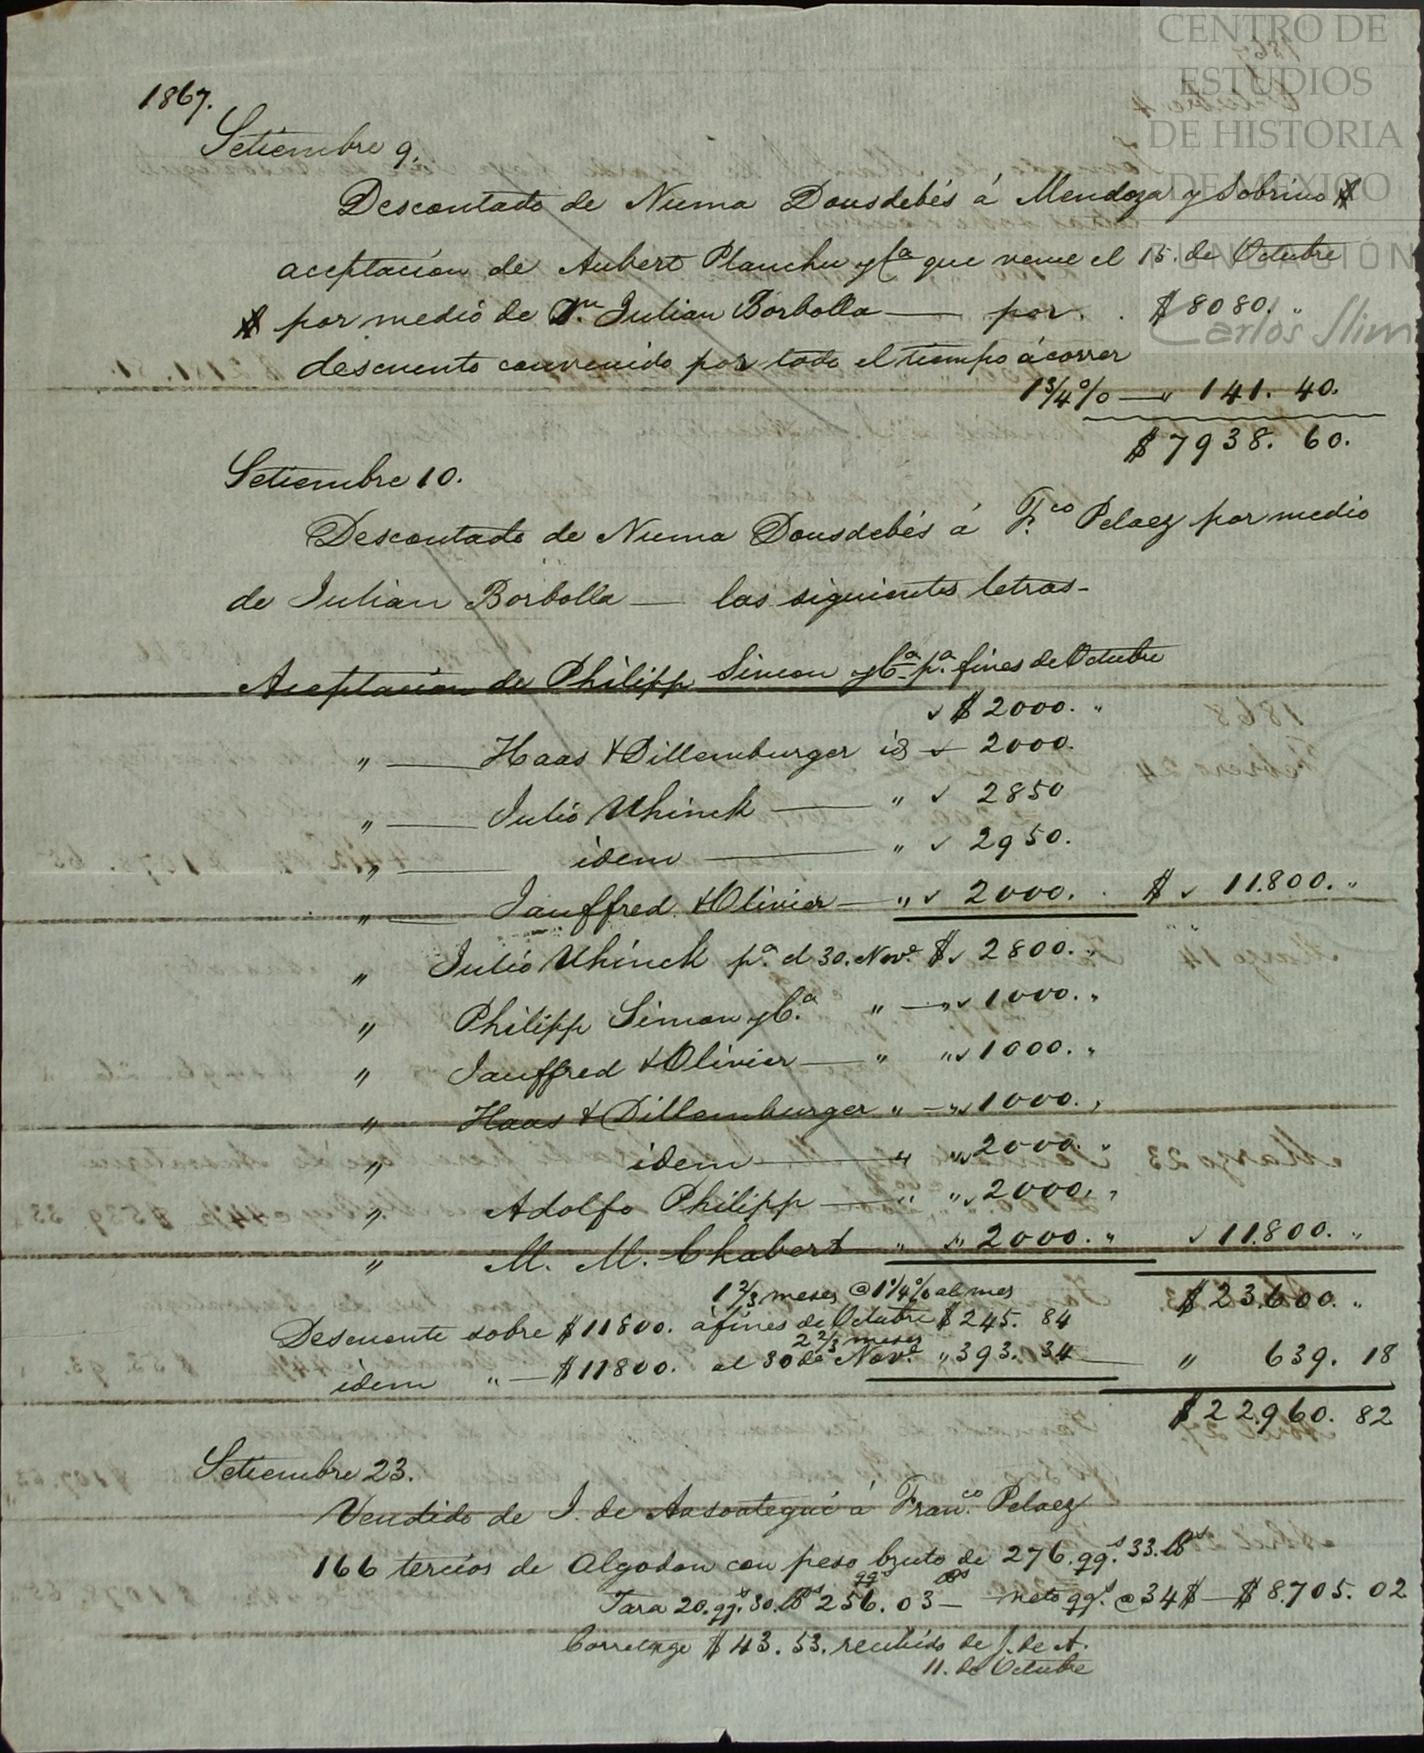 CENTRO DE
ESTUDIOS
DE HISTORIA
DE MÉXICO
FUNDACIÓN
Carlos Slim
1867.
Setiembre 9.
Descontado de Numa Dousdebés á Mendoza y Sobrino
aceptacion de Aubert Planchu yCa que vence el 15. de Octubre
por medio de Dn. Julian Borbolla — por . . $ 8080. "
descuento convenido por todo el tiempo á correr
1 3/4 % — " 141. 40.
$ 7938. 60.
Setiembre 10.
Descontado de Numa Dousdebés á F.co Pelaez por medio
de Julian Borbolla — las siguientes letras-
Aceptacion de Philipp Simon yCa. pa. fines de Octubre
✓ $ 2000. "
" — Haas & Dillemburger id ✓ 2000.
" — Julio Uhinck — " ✓ 2850
" — idem — " ✓ 2950.
" — Jauffred & Olivier — " ✓ 2000. . $ ✓ 11.800. "
" Julio Uhinck pa. el 30. Nove. $ ✓ 2800. "
" Philipp Simon yCa. " — " ✓ 1000. "
" Jauffred & Olivier — " " ✓ 1000. "
" Haas & Dillemburger " — " ✓ 1000. "
" idem — " " ✓ 2000. "
" Adolfo Philipp — " " ✓ 2000. "
" M. M. Chabert " ✓ " 2000. " ✓ 11.800. "
$ 23.600. "
1 2/3 meses @ 1 1/4 % al mes
Descuento sobre $ 11800. á fines de Octubre $ 245. 84
2 2/3 meses
idem " — $ 11800. al 30 de Nove. " 393. 34 — " 639. 18
$ 22.960. 82
Setiembre 23.
Vendido de J. de Ansoategui á Fran.co Pelaez
166 tercios de Algodon con peso bruto de 276. qq.s 33. lbs
Tara 20. qq.s 30. lbs 256. qqs 03 lbs — neto qq.s @ 34 $ — $ 8.705. 02
Corretage $ 43. 53. recibido de J. de A.
11. de Octubre